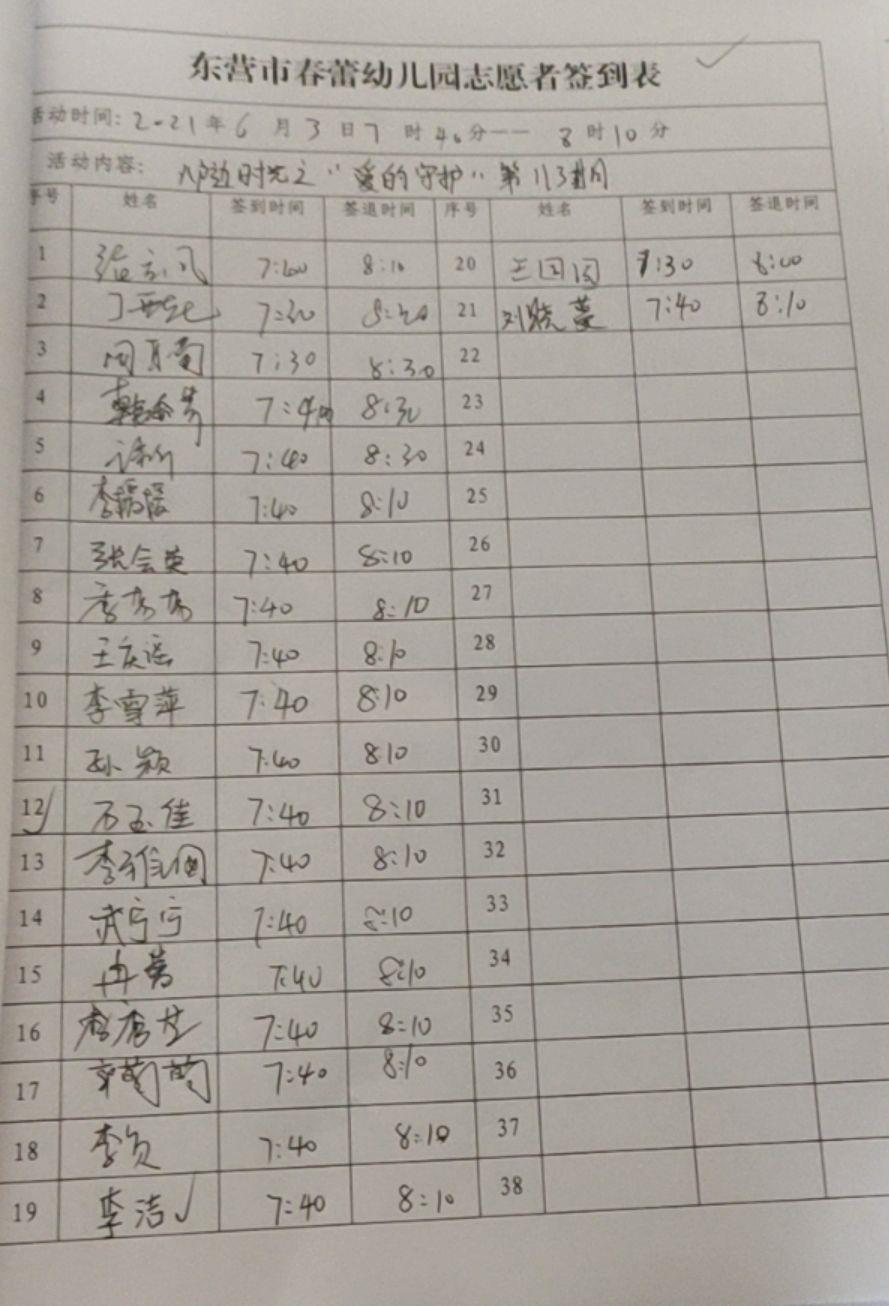 东营市春蕾幼儿园志愿者签到表
活动时间: 2021年6月3日7时40分—— 8时10分
活动内容: 时光之“爱的守护”第113期
序号 姓名 签到时间 签退时间 序号 姓名 签到时间 签退时间
1 8:10 20 7:30 8:00
2 21 刘晓蔓 7:40 8:10
3 7:30 8:30 22
4 7:40 8:30 23
5 7:40 8:30 24
6 李媛媛 7:40 8:10 25
7 张会英 7:40 8:10 26
8 7:40 8:10 27
9 王庆运 7:40 8:10 28
10 李雪萍 7:40 8:10 29
11 孙颖 7:40 8:10 30
12 石玉佳 7:40 8:10 31
13 李 7:40 8:10 32
14 武宁宁 7:40 8:10 33
15 冉 7:40 8:10 34
16 7:40 8:10 35
17 7:40 8:10 36
18 李 7:40 8:10 37
19 李洁 7:40 8:10 38